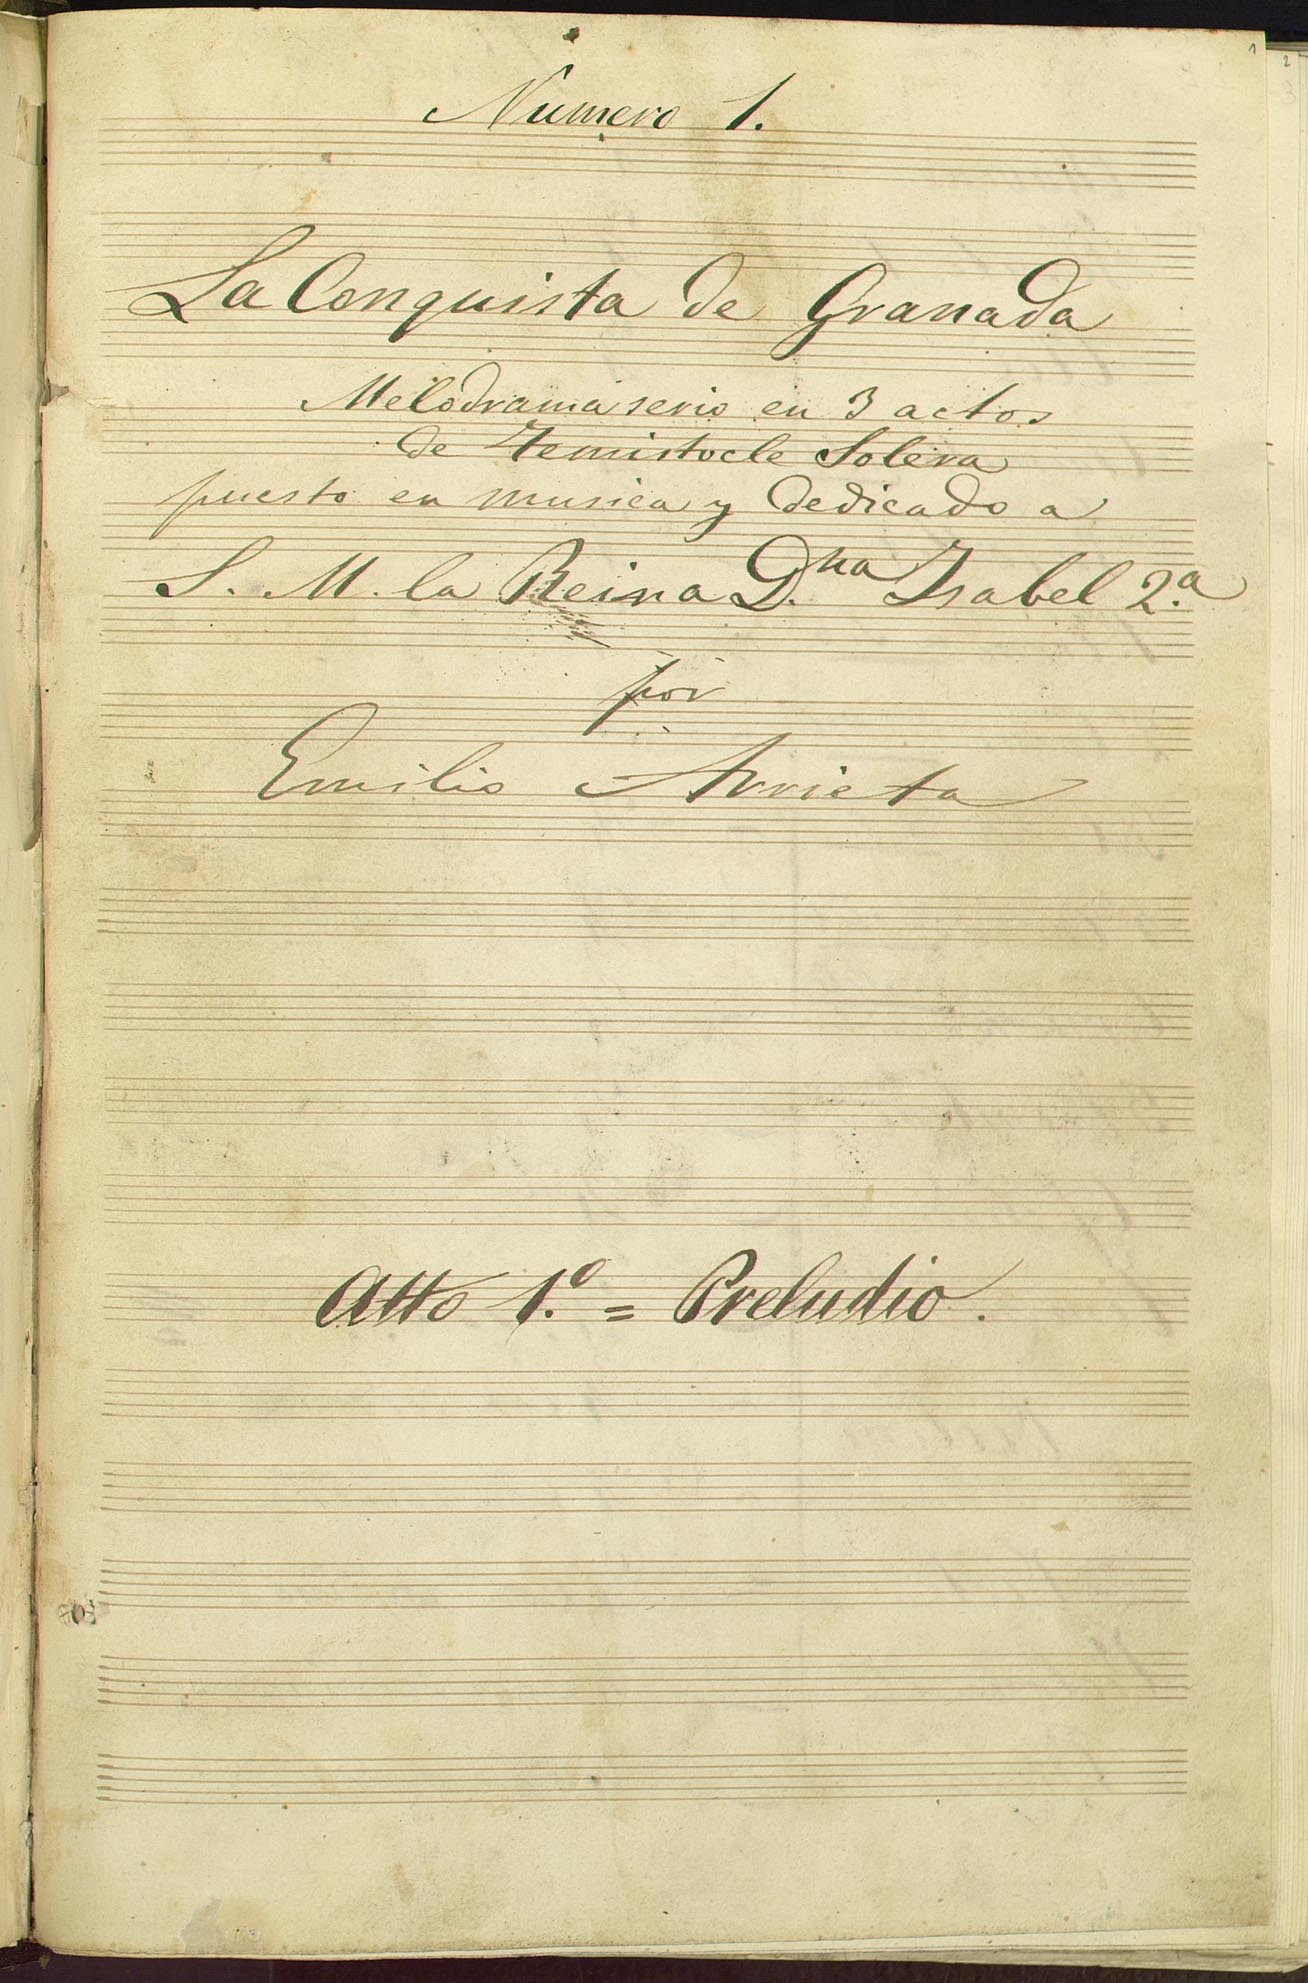 1
2
Numero 1.
La Conquista de Granada
Melodrama serio en 3 actos
de Temistocle Solera
puesto en musica y dedicado a
S. M. la Reina D.na Isabel 2.a
por
Emilio Arrieta
Atto 1.o = Preludio.